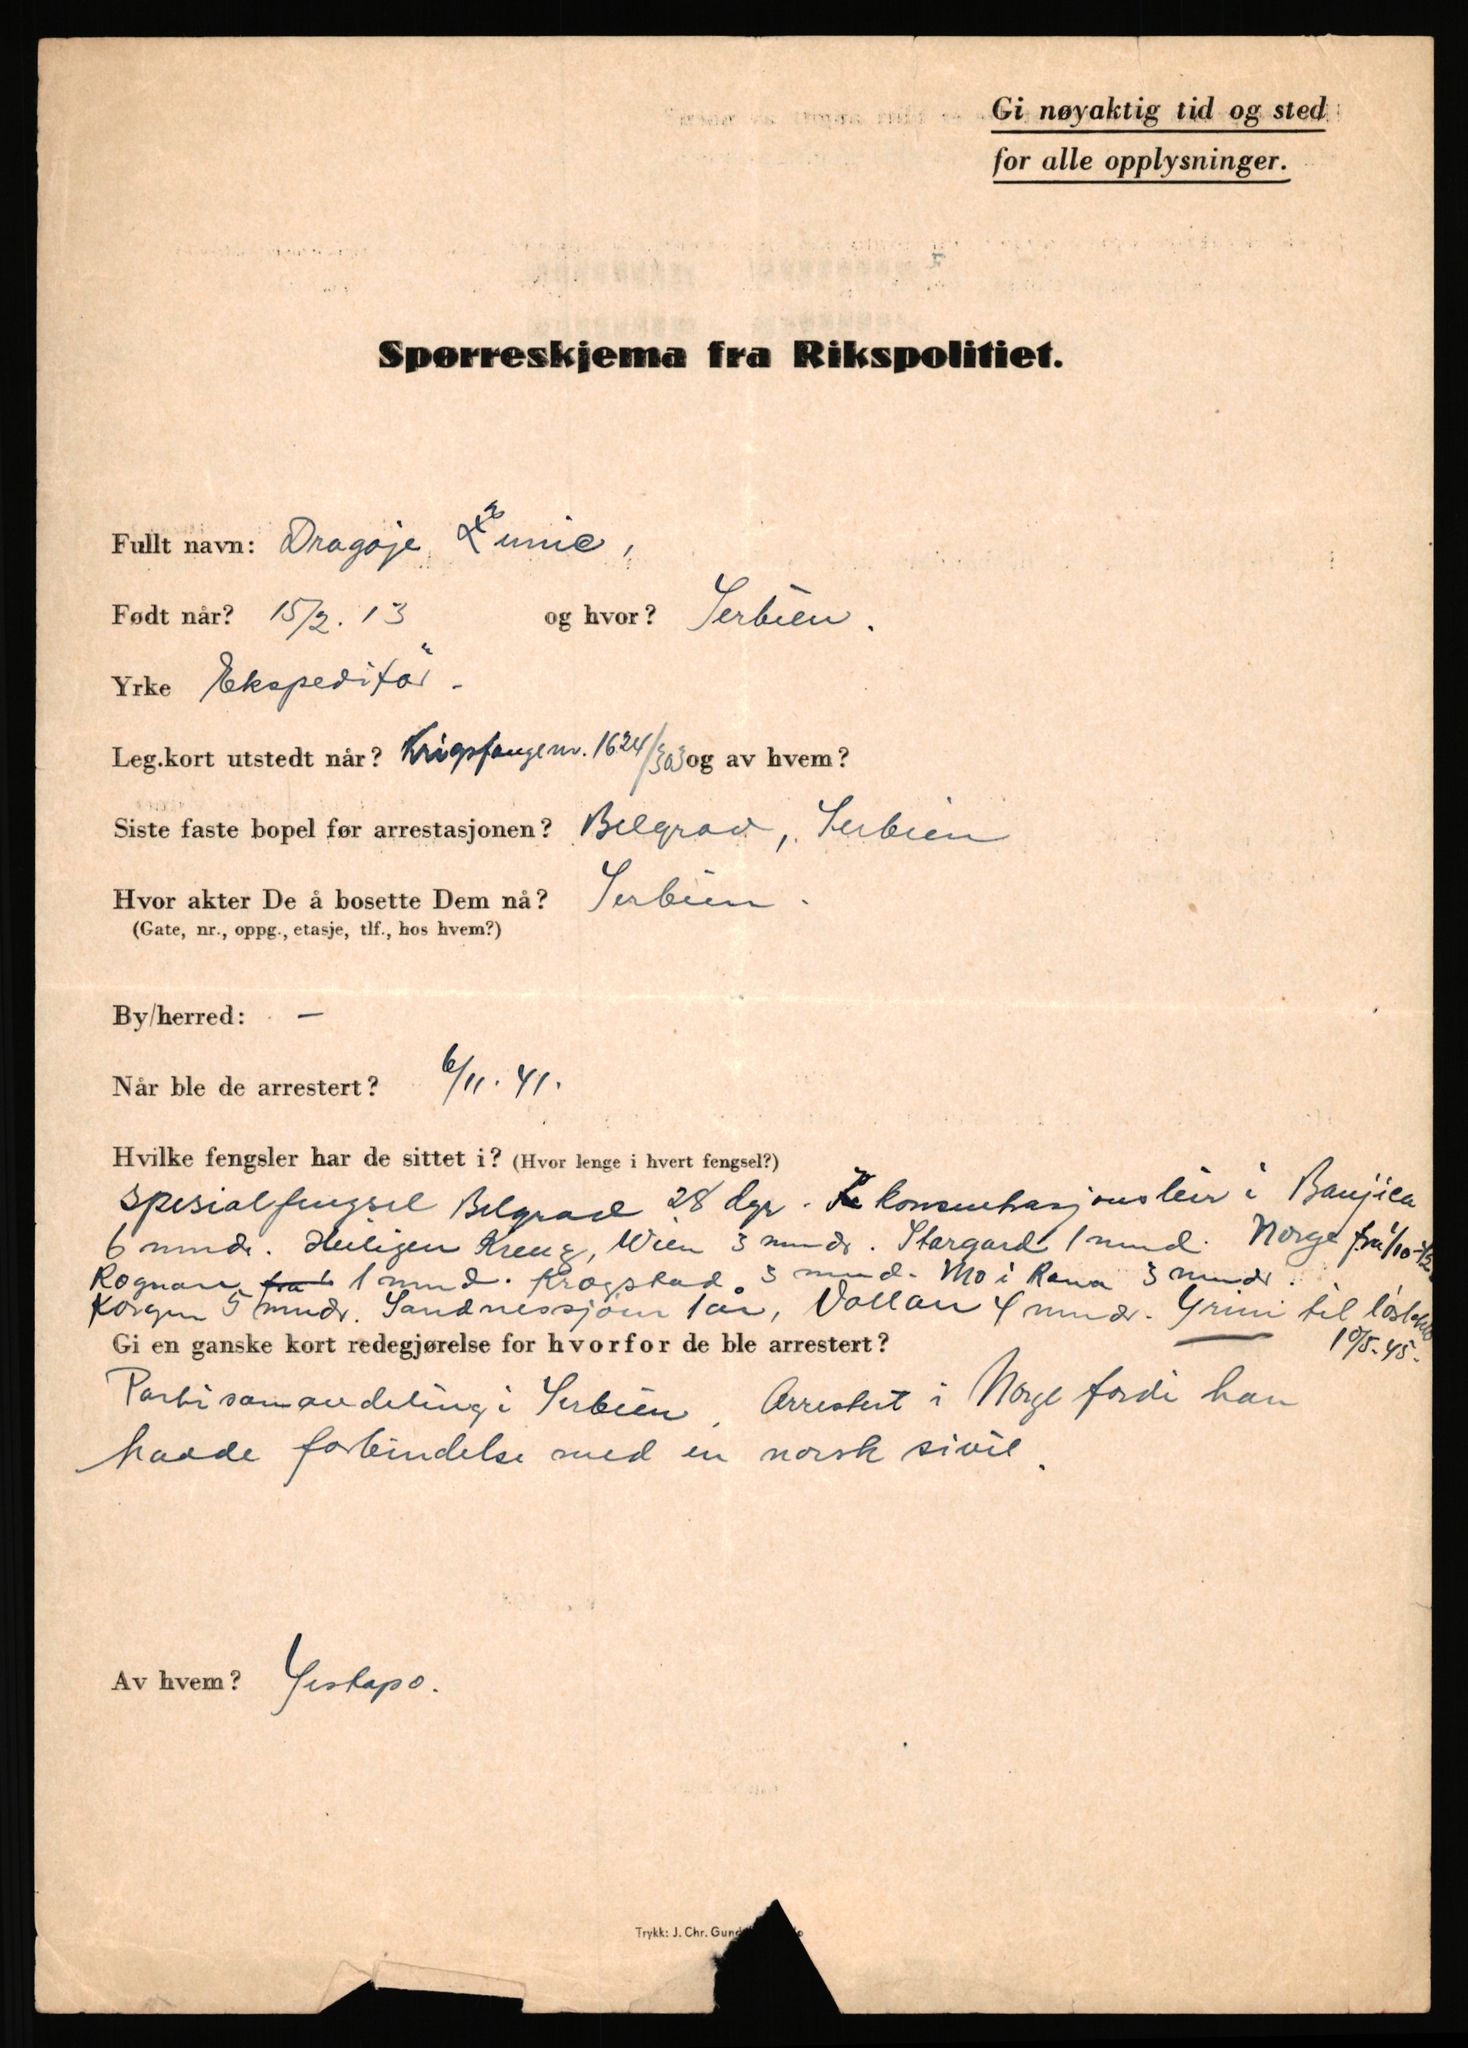 Gi nøyaktig tid og sted
for alle opplysninger.
Spørreskjema fra Rikspolitiet.
Fullt navn: Dragoje
Født når? 15/2. 13 og hvor? Serbien.
Yrke Ekspeditör.
Leg.kort utstedt når? Krigsfange nr. 1624/303 og av hvem?
Siste faste bopel før arrestasjonen? Belgrad, Serbien
Hvor akter De å bosette Dem nå? Serbien.
(Gate, nr., oppg., etasje, tlf., hos hvem?)
By/herred: —
Når ble de arrestert? 6/11. 41.
Hvilke fengsler har de sittet i? (Hvor lenge i hvert fengsel?)
Spesialfengsel Belgrad 28 dgr. konsentrasjonsleir i Banjica
6 mndr. Heiligen Kreuz, Wien 3 mndr. Stargard 1 mnd. Norge fra 1/10-
Rognan fra 1 mnd. Krogstad 3 mnd. Mo i Rana 3 mndr.
Korgen 5 mndr. Sandnessjøen 1 år, Vollan 4 mndr. Grini til
10/5-45.
Gi en ganske kort redegjørelse for hvorfor de ble arrestert?
Partisanavdeling i Serbien. Arrestert i Norge fordi han
hadde forbindelse med en norsk sivil.
Av hvem? Gestapo.
Trykk: J. Chr.